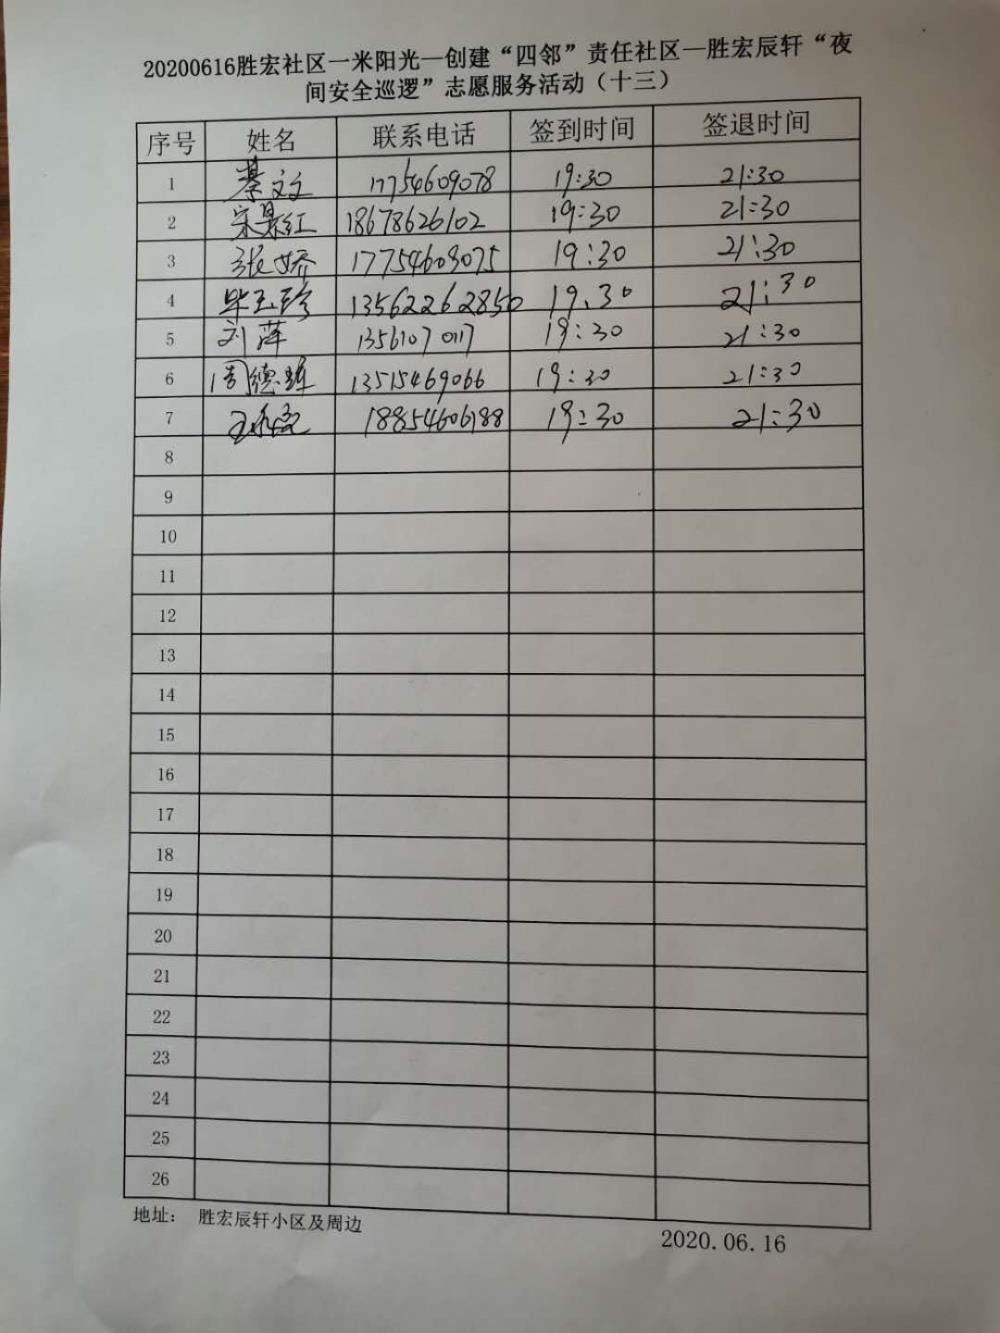 20200616胜宏社区一米阳光—创建“四邻”责任社区—胜宏辰轩“夜
间安全巡逻”志愿服务活动（十三）
序号 姓名 联系电话 签到时间 签退时间
1 綦文文 17754609078 19:30 21:30
2 宋景红 18678626102 19:30 21:30
3 张娇 17754609075 19:30 21:30
4 毕玉珍 13562262850 19.30 21:30
5 刘萍 13561070117 19:30 21:30
6 周德 13515469066 19:30 21:30
7 王 18854606188 19:30 21:30
8
9
10
11
12
13
14
15
16
17
18
19
20
21
22
23
24
25
26
地址： 胜宏辰轩小区及周边
2020.06.16